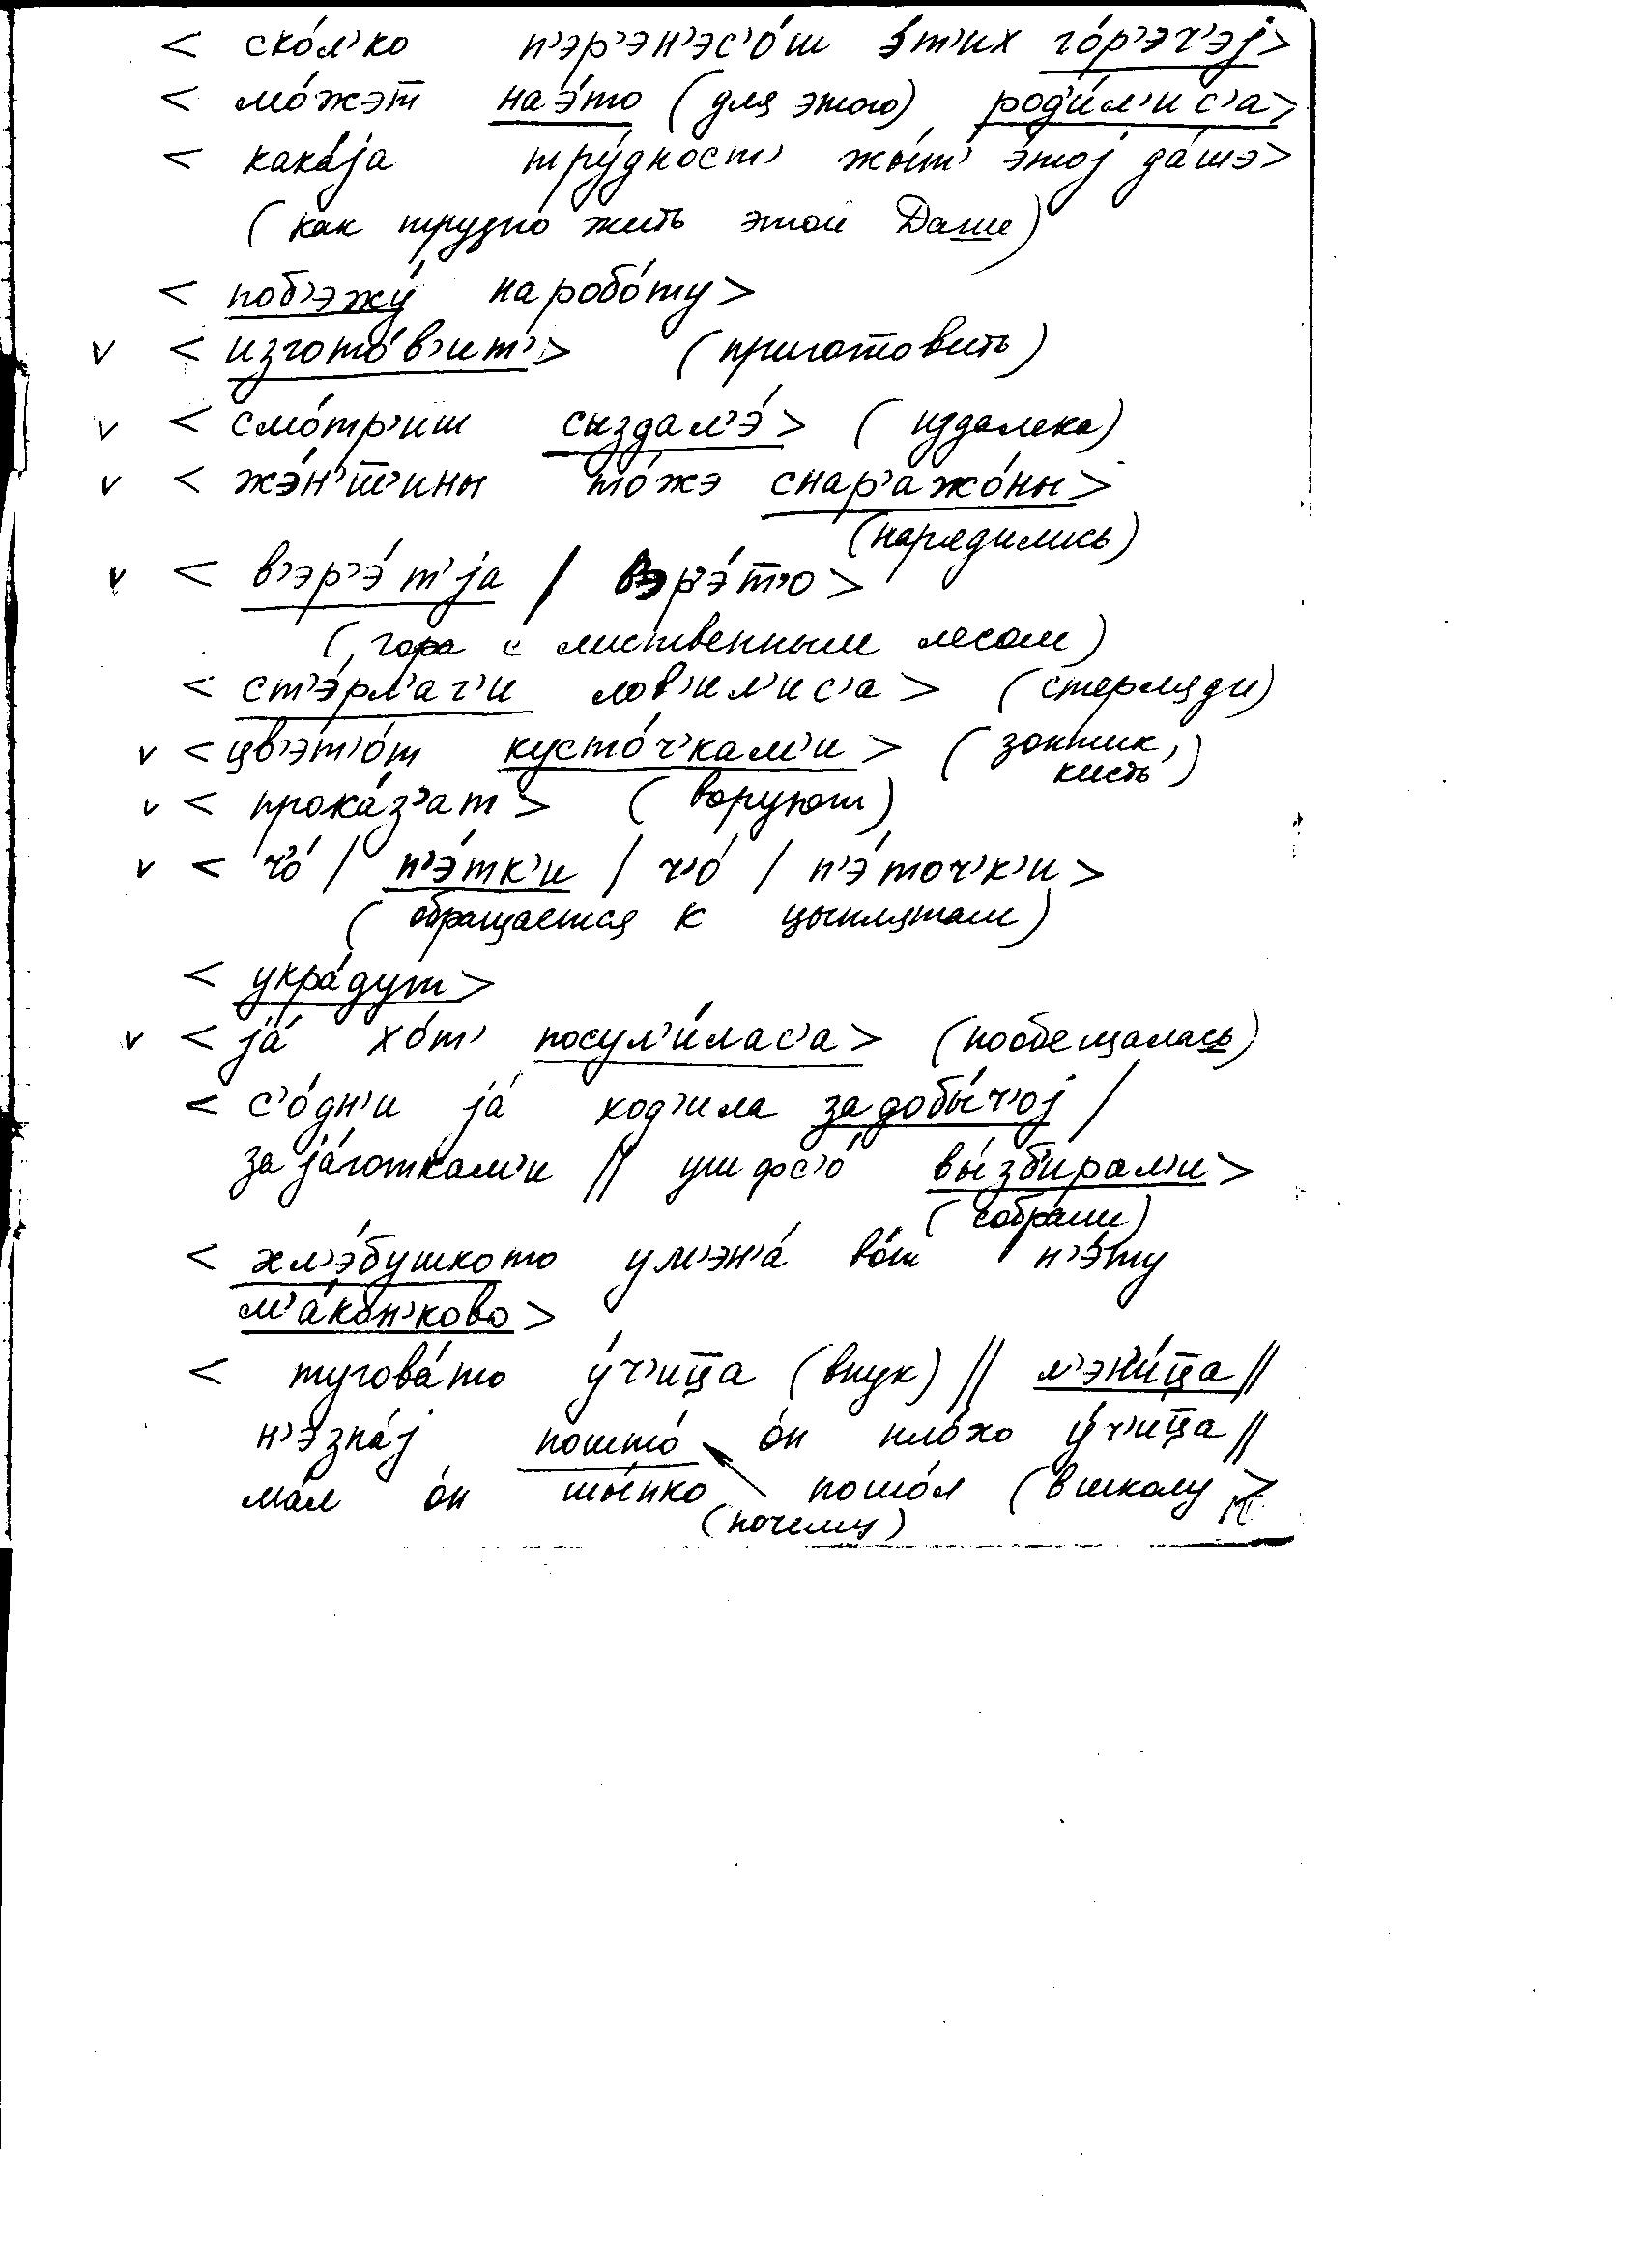 < ско́л’ко п’эр’эн’эс’о́ш э́т’их го́р’эч’эј>
< мо́жэт на э́то (для этого) род’и́л’ис’а>
< кака́ја тру́дност’ жы́т’ э́тој да́шэ>
(как трудно жить этой Даше)
< поб’эжу́ на робо́ту>
v < изгото́в’ит’> (приготовить)
v < смо́тр’иш сыздал’э́> (издалека)
v < жэ́н’ш’ины то́жэ снар’ажо́ны>
(нарядились)
v < в’эр’э́т’ја / вэр’э́т’о>
(гора с лиственным лесом)
< ст’э́рл’аг’и лов’ил’ис’а> (стерляди)
v < цв’эт’о́т кусто́ч’кам’и> (зонтик,
кисть)
v < прока́з’ат> (воруют)
v < ч’о́ / п’э́тк’и / ч’о́ / п’э́точ’к’и>
(обращается к цыплятам)
< укра́дут>
v < ја́ хо́т’ посул’и́лас’а> (пообещалась)
< с’о́дн’и ја́ ход’ила за добы́ч’ој /
за ја́готкам’и // уш фс’о́ вы́зб’ирал’и>
(собрали)
< хл’э́бушкото ум’эн’а́ во́т н’э́ту
м’а́кон’ково>
< тугова́то у́ч’ица (внук) // л’эн’и́ца //
н’э зна́ј пошто́ о́н пло́хо у́ч’ица //
ма́л о́н шы́пко пошо́л (в школу>
(почему)